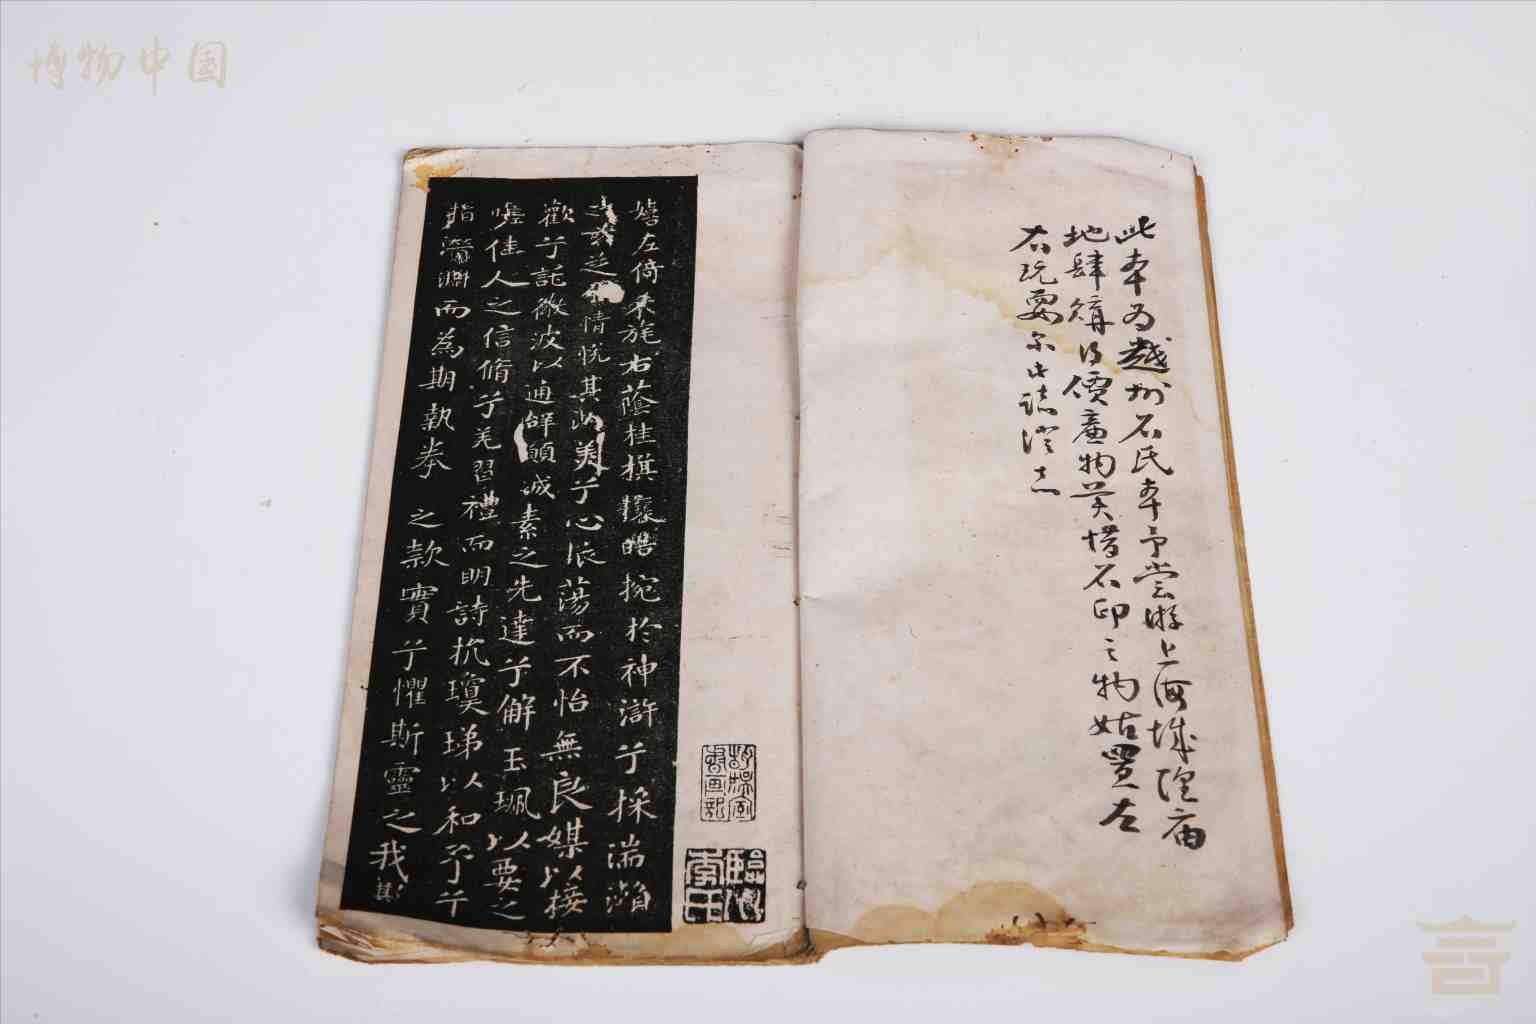 博物中国
此本为越州石氏本予嘗游上海城隍庙
地肆購得價廉物美惜石印之物姑置左
右玩耍尔
嬉左倚采旄右蔭桂旗攘皓捥於神滸兮採湍瀨
之芝情悅其淑美兮心振蕩而不怡無良媒以接
歡兮託微波以通辭願誠素之先達兮解玉珮以要之
嗟佳人之信脩兮羌習禮而明詩抗瓊珶以和予兮
指潛淵而為期執拳之款實兮懼斯靈之我其
臨川李氏